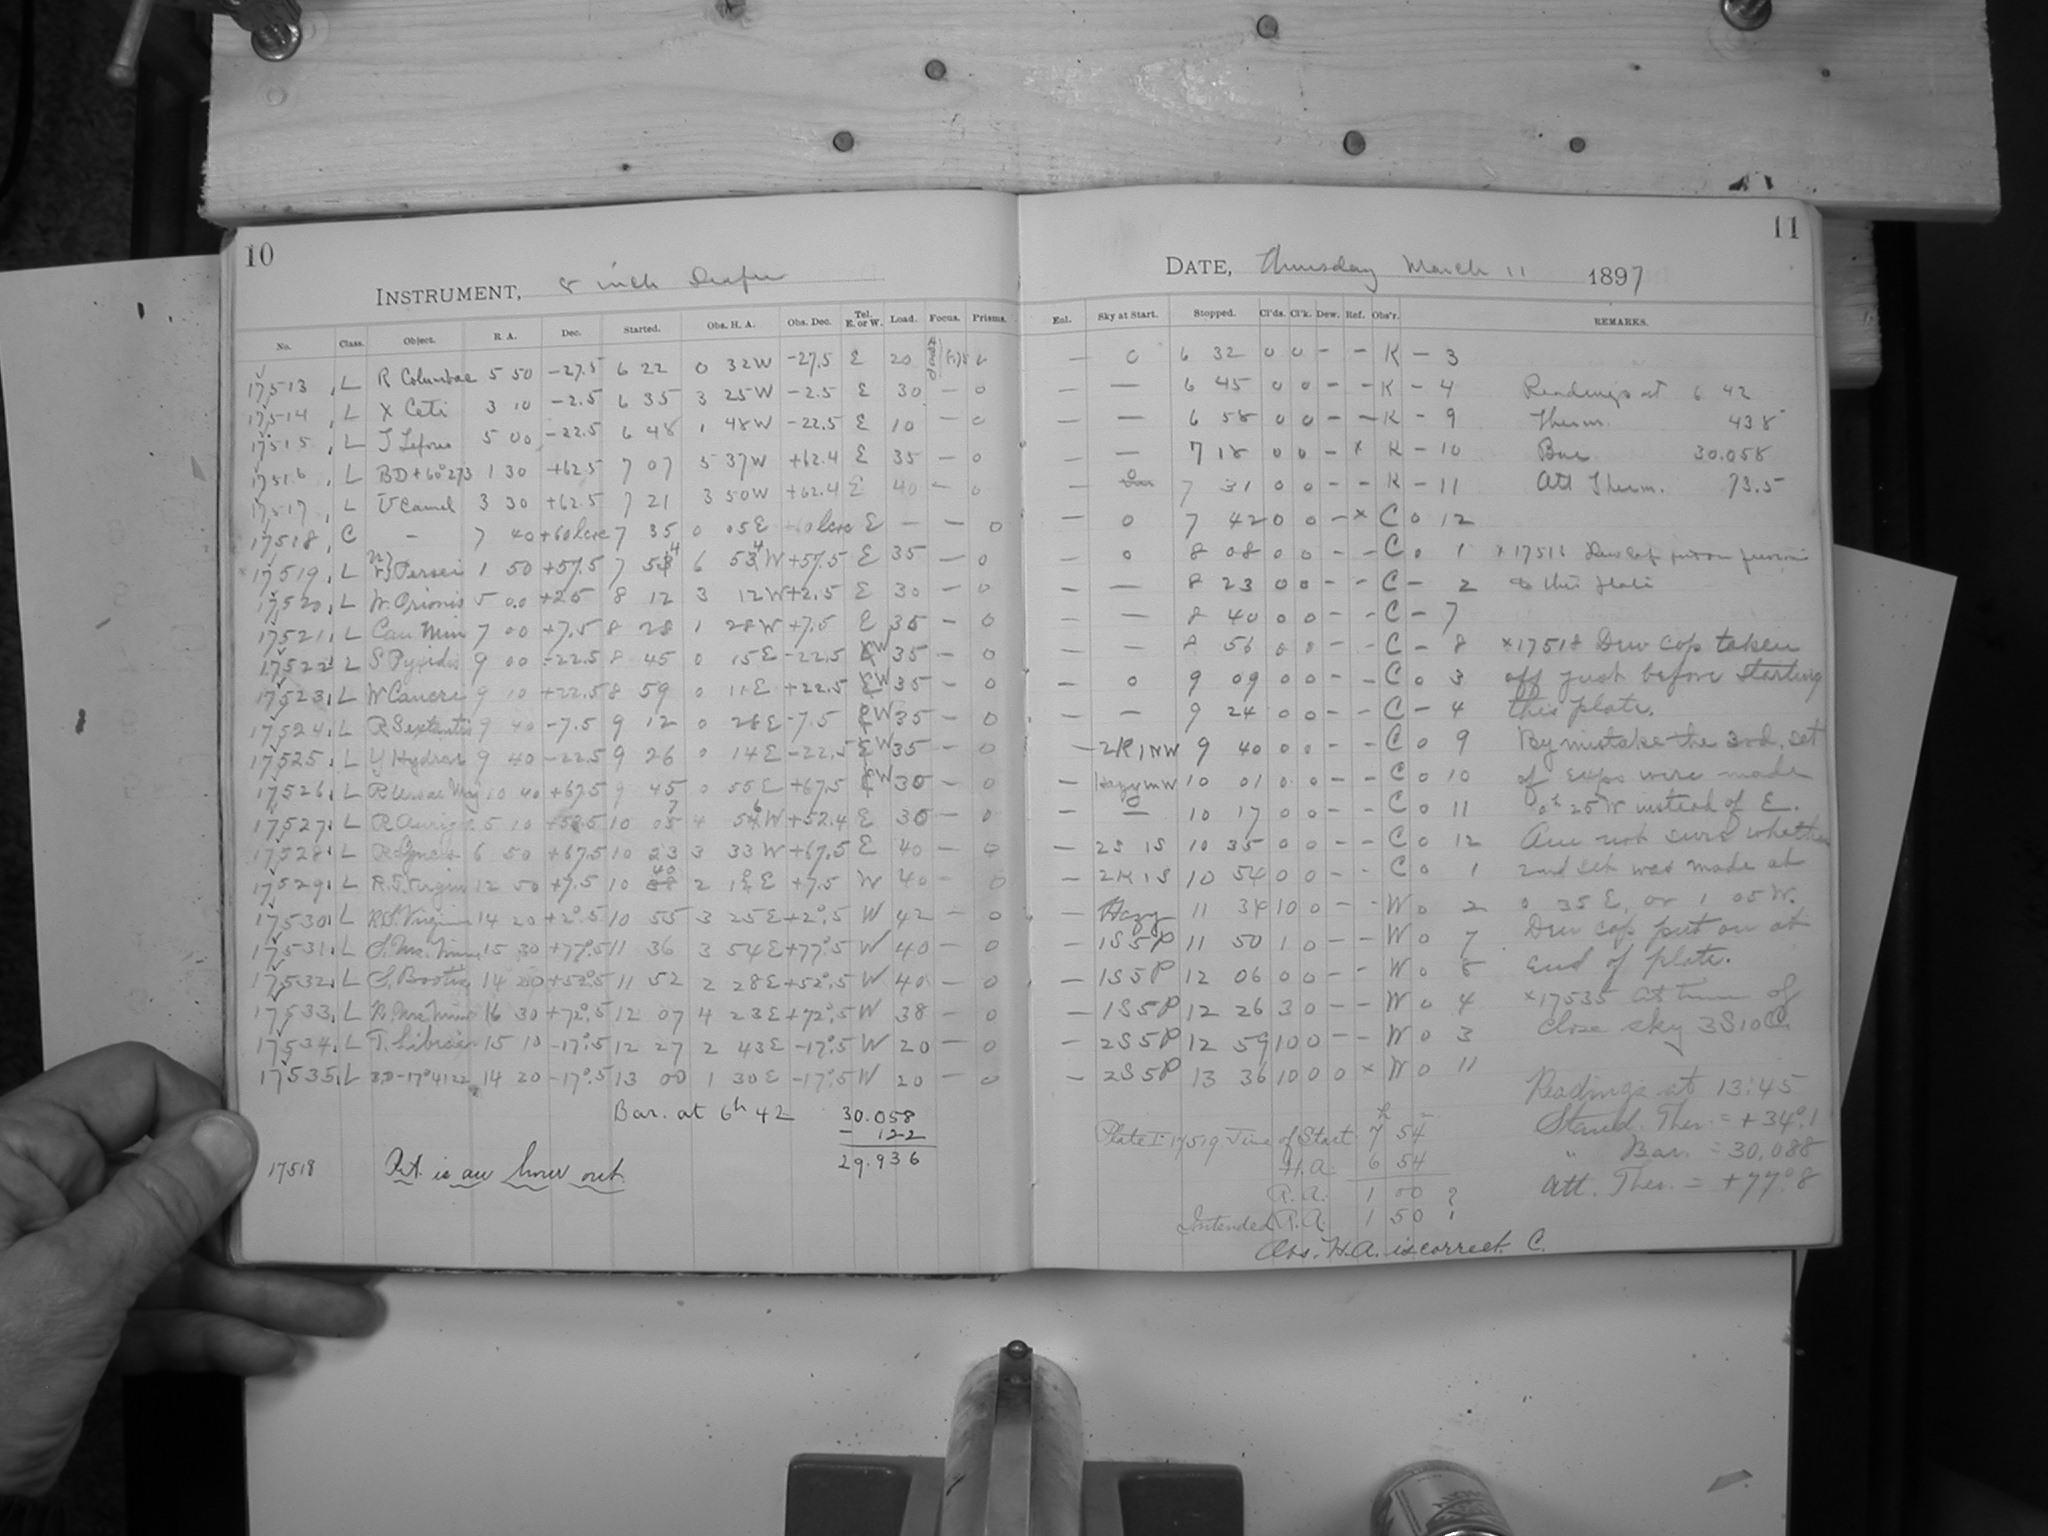 10
INSTRUMENT, 8 inch Draper
No. Class. Object. R. A. Dec. Started. Obs. H. A. Obs. Dec. Tel. E. or W. Load. Focus. Prisms.
17513, L R Columbae 5 50 -27.5 6 22 0 32W -27.5 E 20 0
17514, L X Ceti 3 10 -2.5 6 35 3 25W -2.5 E 30 - 0
17515, L T Leporis 5 00 -22.5 6 48 1 48W -22.5 E 10 - 0
17516, L BD+60°273 1 30 +62.5 7 07 5 37W +62.4 E 35 - 0
17517, L U Camel 3 30 +62.5 7 21 3 50W +62.4 E 40 - 0
17518, C - 7 40 +60 7 35 0 05E E - - 0
17519, L Persei 1 50 +57.5 7 54 6 54 W +57.5 E 35 - 0
17520, L W. Orionis 5 00 +2.5 8 12 3 12W +2.5 E 30 - 0
17521, L Can Min 7 00 +7.5 8 28 1 28W +7.5 E 35 - 0
17522, L S Pyxidis 9 00 -22.5 8 45 0 15E -22.5 W 35 - 0
17523, L W Cancri 9 10 +22.5 8 59 0 11E +22.5 W 35 - 0
17524, L R Sextantis 9 40 -7.5 9 12 0 28E -7.5 W 35 - 0
17525, L Y Hydrae 9 40 -22.5 9 26 0 14E -22.5 W 35 - 0
17526, L R Ursae Maj 10 40 +67.5 9 45 0 55E +67.5 W 30 - 0
17527, L R Aurigae 5 10 10 07 4 56W +52.4 E 30 - 0
17528, L R Lyncis 6 50 +67.5 10 23 3 33W +67.5 E 40 - 0
17529, L R. Virgin 12 50 +7.5 10 40 2 E +7.5 W 40 - 0
17530, L Virginis 14 20 +2°.5 10 55 3 25E +2°.5 W 42 - 0
17531, L S. Urs. Min 15 30 +77°.5 11 36 3 54E +77°.5 W 40 - 0
17532, L S. Bootis 14 20 +52°.5 11 52 2 28E +52°.5 W 40 - 0
17533, L R. Urs. Min 16 30 +72°.5 12 07 4 23E +72°.5 W 38 - 0
17534, L T. Librae 15 10 -17°.5 12 27 2 43E -17°.5 W 20 - 0
17535, L B.D-17°4122 14 20 -17°.5 13 00 1 30E -17°.5 W 20 - 0
Bar. at 6h 42 30.058
- 122
29.936
17518 R.A. is an hour out.
11
DATE, Thursday March 11 1897
Enl. Sky at Start. Stopped. Cl'ds. Cl'k. Dew. Ref. Obs'r. REMARKS.
- 0 6 32 0 0 - - K - 3
- - 6 45 0 0 - - K - 4 Readings at 6 42
- - 6 58 0 0 - - K - 9 Therm. 43.8
- - 7 18 0 0 - x K - 10 Bar 30.058
- 0 7 31 0 0 - - K - 11 Att Therm. 73.5
- 0 7 42 0 0 - x C 0 12
- 0 8 08 0 0 - - C 0 1 Dew cap put on previous
- - 8 23 0 0 - - C - 2 to this plate
- - 8 40 0 0 - - C - 7
- - 8 56 0 0 - - C - 8 x17518 Dew cap taken
- 0 9 09 0 0 - - C 0 3 off just before starting
- - 9 24 0 0 - - C - 4 this plate.
- 2K1NW 9 40 0 0 - - C 0 9 By mistake the 3rd. set
- Hazy NW 10 01 0 0 - - C 0 10 of exps were made
- - 10 17 0 0 - - C 0 11 0h 25 W instead of E.
- 2S 1S 10 35 0 0 - - C 0 12 Am not sure whether
- 2K1S 10 54 0 0 - - C 0 1 2nd set was made at
- Hazy 11 34 10 0 - - W 0 2 0 35 E, or 1 05 W.
- 1S5P 11 50 1 0 - - W 0 7 Dew cap put on at
- 1S5P 12 06 0 0 - - W 0 8 end of plate.
- 1S5P 12 26 3 0 - - W 0 4 x17535 At time of
- 2S5P 12 59 10 0 - - W 0 3 close sky 3S10C.
- 2S5P 13 36 10 0 0 x W 0 11
Readings at 13:45
Stand. Ther. = +34°.1
" Bar. = 30.088
Att. Ther. = +77°.8
Plate I 17519 Time of Start 7h 54m
H.A. 6 54
R.A. 1 00 ?
Intended R.A. 1 50 !
Obs. H.A. is correct. C.